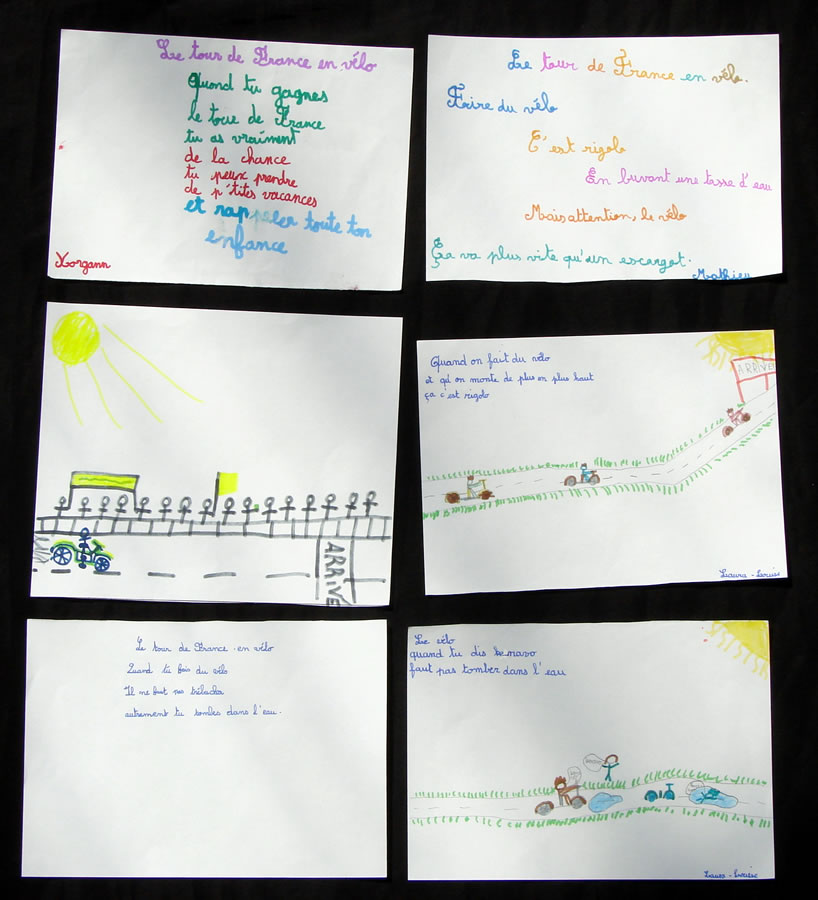 Le tour de France en vélo
Quand tu gagnes
le tour de France
tu as vraiment
de la chance
tu peux prendre
de p'tites vacances
et rappeler toute ton
enfance
Yorgann
Le tour de France en vélo.
Faire du vélo
C'est rigolo
En buvant une tasse d'eau
Mais attention, le vélo
Ça va plus vite qu'un escargot.
Mathieu
ARRIVE
Quand on fait du vélo
et qu'on monte de plus en plus haut
ça c'est rigolo
ARRIVE
Laura - Louise
Le tour de France en vélo
Quand tu fais du vélo
Il ne faut pas
autrement tu tombes dans l'eau.
Le vélo
quand tu dis bravo
faut pas tomber dans l'eau
Laura - Louise